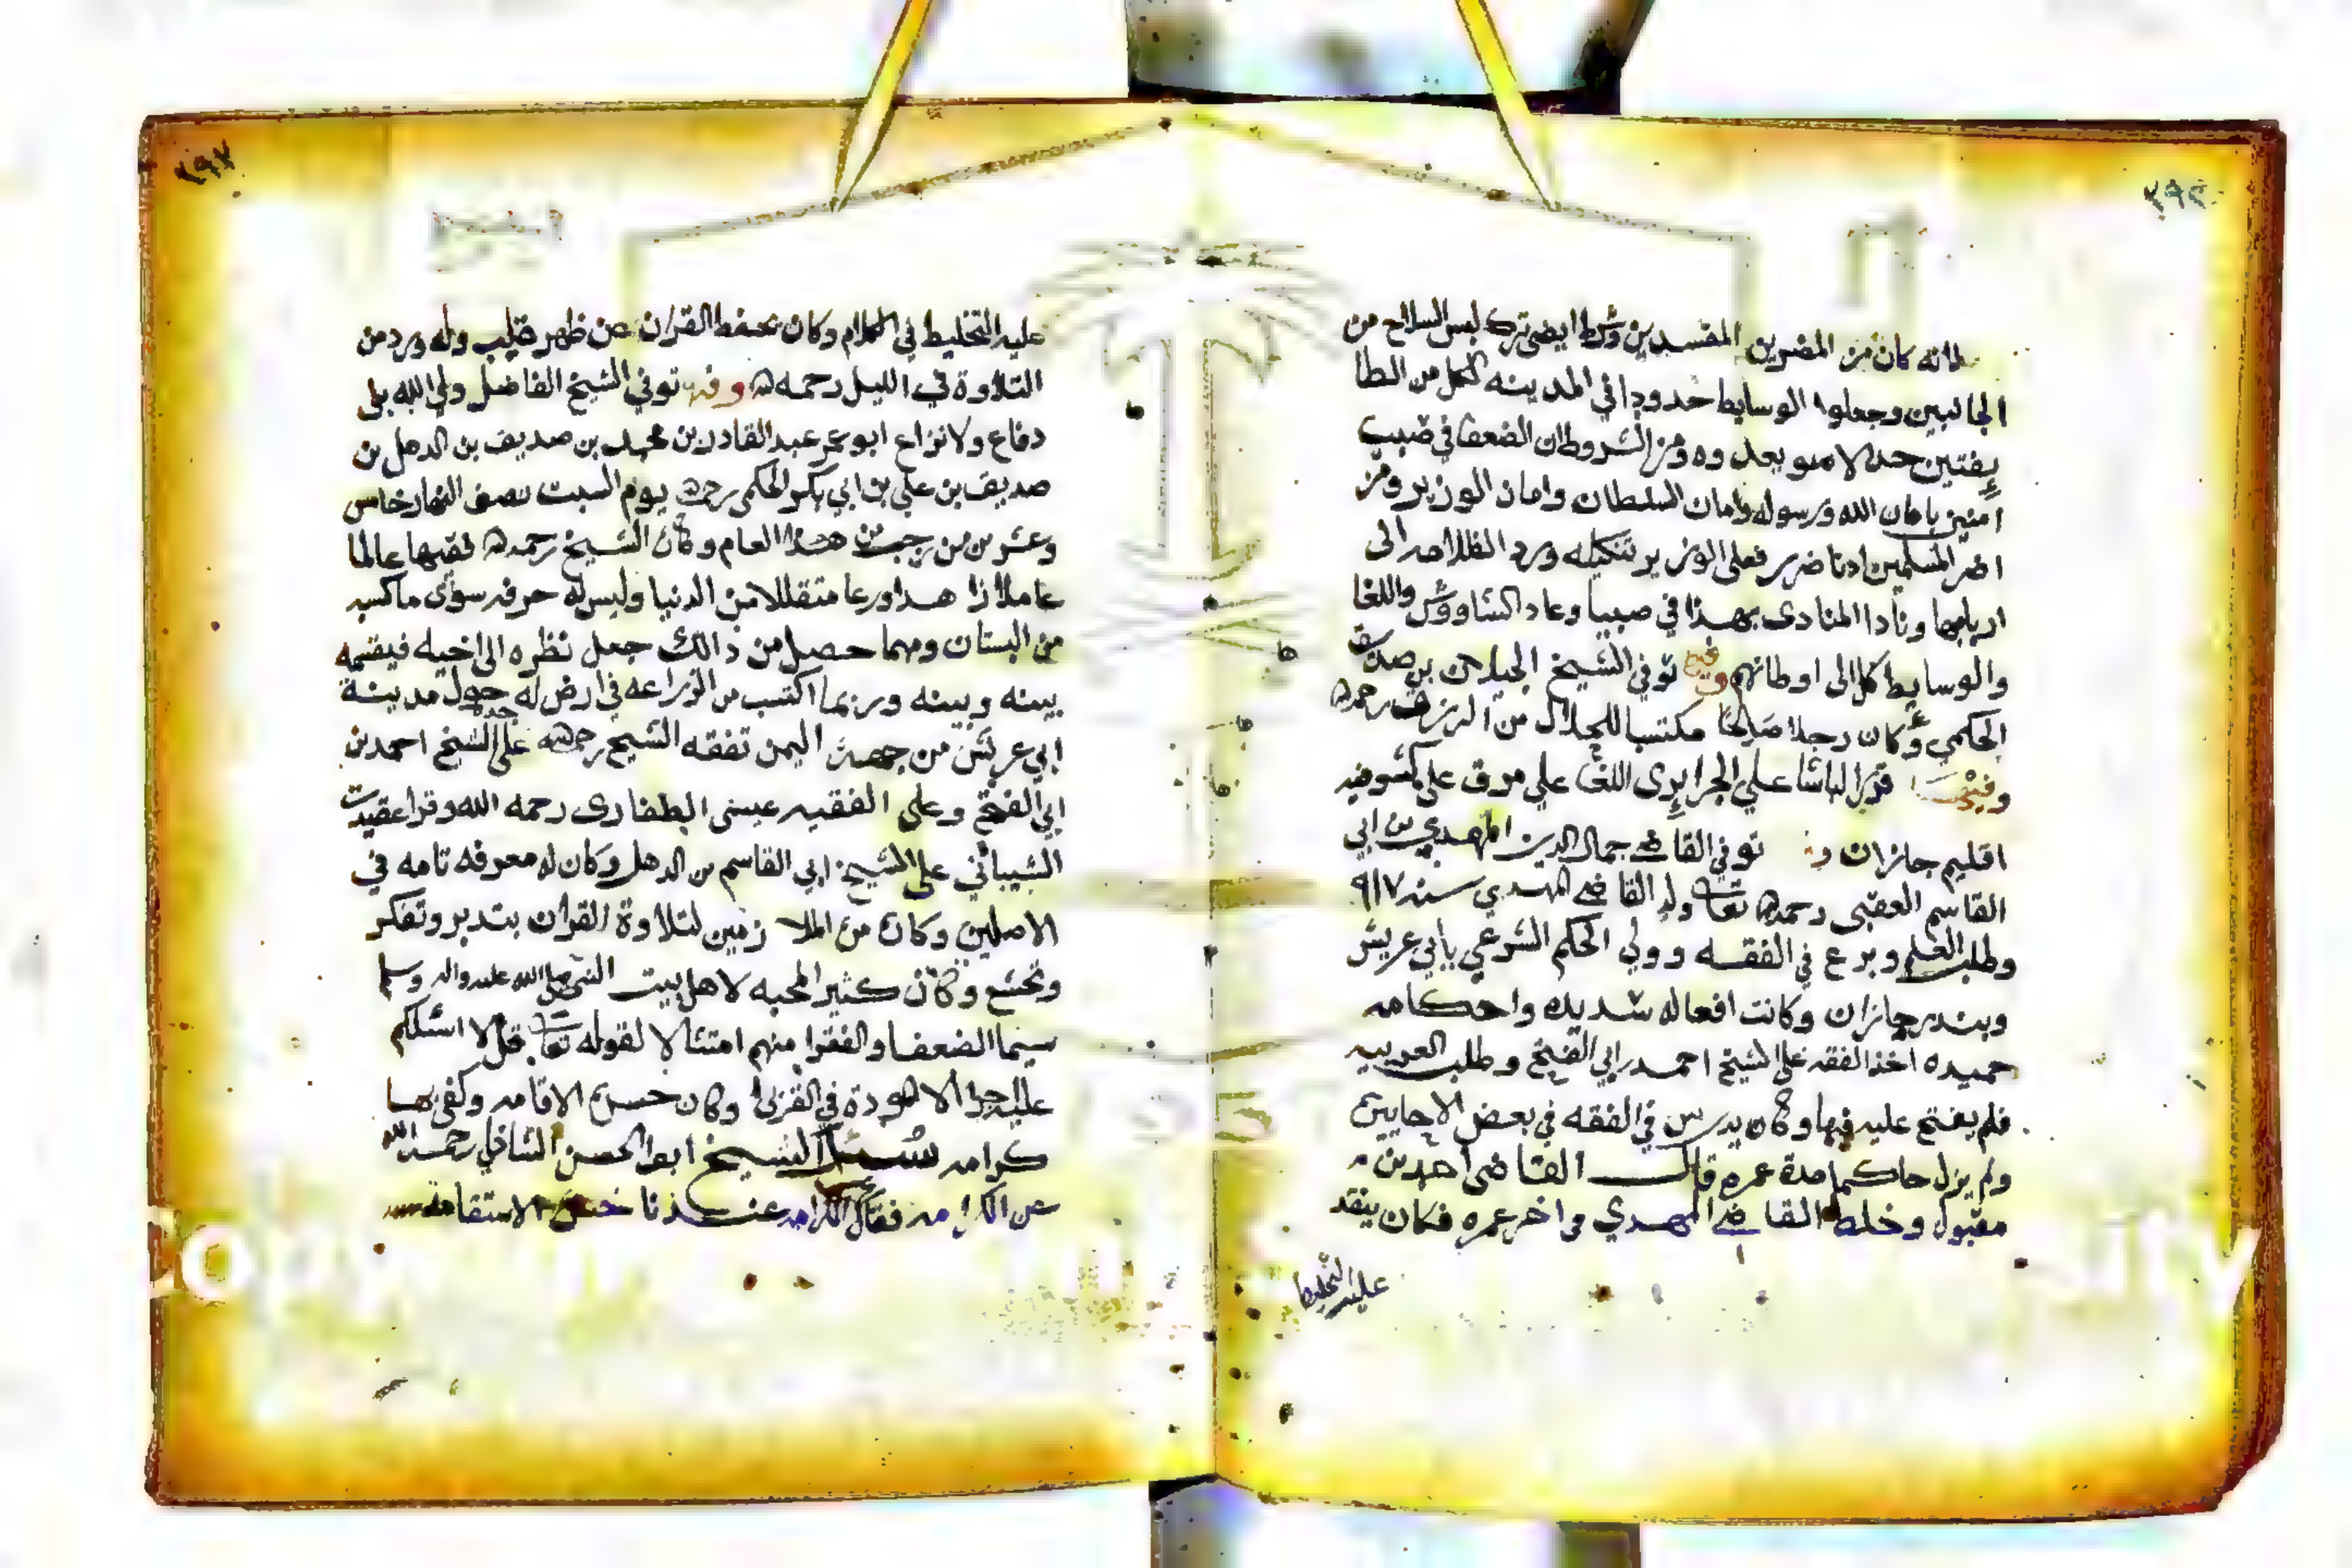 لانه كان من المضرين المفسدين وشرط ايضى ترك لبس السلاح من
الجانبين وجعلوا الوسايط حدودا في المدينه لكل من الطا
يفتين حدا لا سو بعدوه ومن الشروط ان الضعفا في صبيب
امنين بامان الله ورسوله وامان السلطان وامان الوزير ومن
اضر المسلمين ادنا ضرر فعلى الوزير تنكيله ورد الظلامه الى
اربابها ونادا المنادى بهذا في صبيا وعاد الشاووش واللغا
والوسايط كل الى اوطانهم وفيها توفي الشيخ الجيلاني بن صديق
الحكمي وكان رجلا صالحا مكتسبا للحلال من الرزق رحمه الله
وفيها قرر الباشا علي الجزايري اللغا علي موق على كشوفيه
اقليم جازان وفيه توفي القاضي جمال الدين المهدي بن ابي
القاسم العقبى رحمه الله تعا ولد القاضي المهدي سنه ٩١٧
وطلب العلم وبرع في الفقه وولي الحكم الشرعي بابي عريش
وبندر جازان وكانت افعاله شديده واحكامه
حميده اخذ الفقه على الشيخ احمد بن ابي الفتح وطلب العربيه
فلم يفتح عليه فيها وكان يدرس في الفقه في بعض الاحايين
ولم يزل حاكما مدة عمره قال القاضي احمد بن
مقبول وخلط القاضي المهدي في اخر عمره فكان ينقد
عليه التخليط
٢٩٧
عليه التخليط في الكلام وكان يحفظ القران عن ظهر قلب وله ورد من
التلاوة في الليل رحمه الله وفيها توفي الشيخ الفاضل ولي الله بلى
دفاع ولا نزاع ابو عمر عبد القادر بن محمد بن صديق بن الدهل بن
صديق بن علي بن ابي بكر الحكمي رحمه الله يوم السبت نصف النهار خامس
وعشرين من رجب من هذا العام وكان الشيخ رحمه الله فقيها عالما
عاملا زاهدا ورعا متقللا من الدنيا وليس له حرفه سوى ماكسبه
من البستان ومهما حصل من ذالك جعل نظره الى اخيه فيقتسمه
بينه وبينه وربما اكتسب من الزراعه في ارض له حول مدينة
ابي عريش من جهة اليمن تفقه الشيخ رحمه الله على جده الشيخ احمد بن
ابي الفتح وعلى الفقيه عيسى الظفارى رحمه الله وقرا عقيدت
الشيباني على الشيخ ابي القاسم بن الدهل وكان له معرفه تامه في
الاصلين وكان من الملا زمين لتلاوة القران بتدبر وتفكر
وتخشع وكان كثير المحبه لاهل بيت النبي صلى الله عليه واله وسلم
سيما الضعفا والفقرا منهم امتثالا لقوله تعا قل لا اسئلكم
عليه اجرا الا المودة في القربى وكان حسن الاقامه وكفى بها
كرامه سئل الشيخ ابو الحسن الشاذلي رحمه الله
عن الكرامه فقال الكرامه عندنا حسن الاستقامه